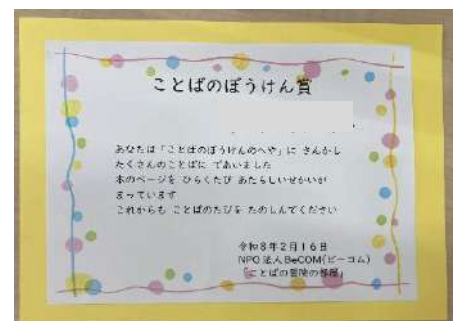 ことばのぼうけん賞
あなたは「ことばのぼうけんのへや」に さんかし
たくさんのことばに であいました
本のページを ひらくたび あたらしいせかいが
まっています
これからも ことばのたびを たのしんでください
令和8年2月16日
NPO法人BeCOM(ビーコム)
「ことばの冒険の部屋」